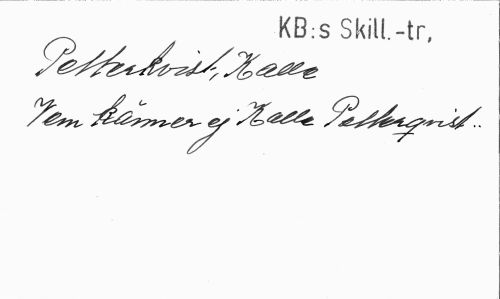 KB:s Skill.-tr,
Petterkvist, Kalle
Vem känner ej Kalle Petterqvist..